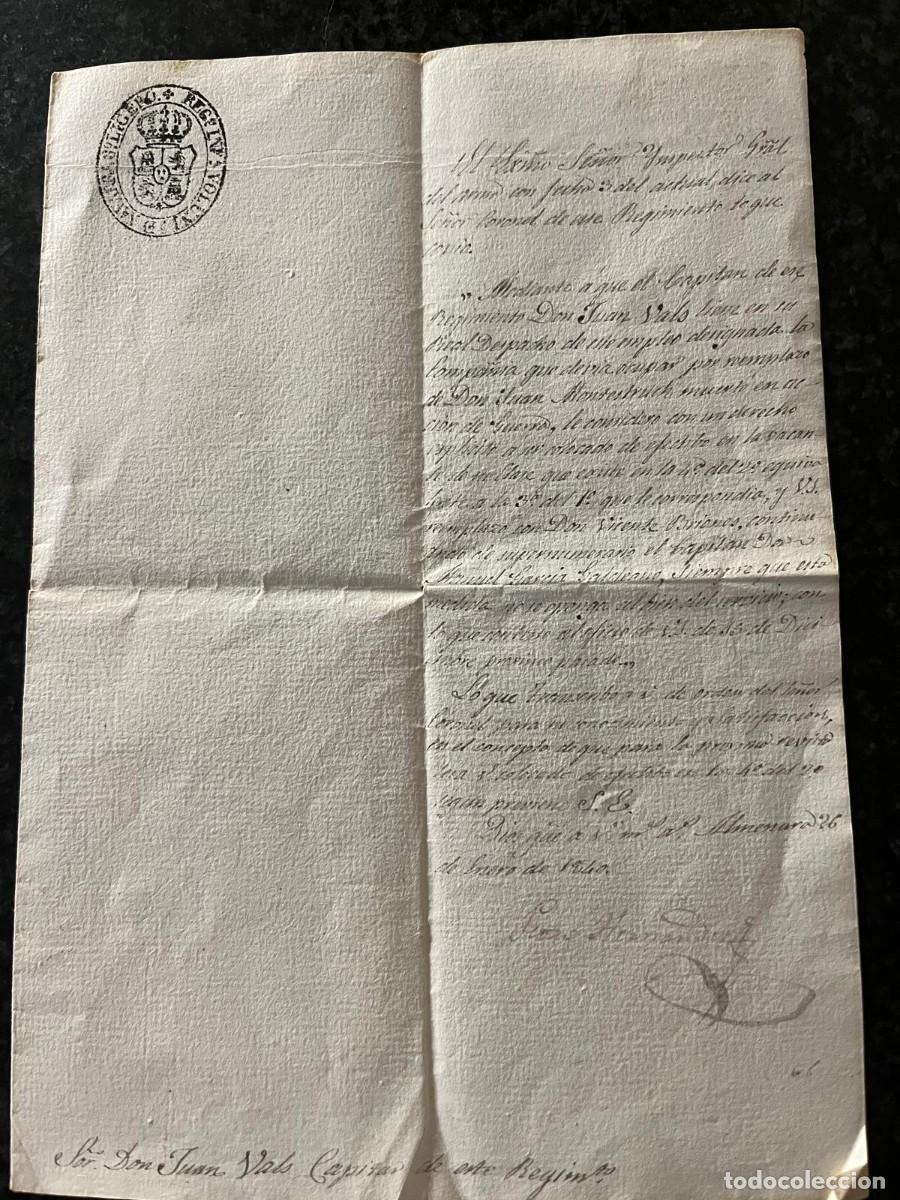 REGTO INFA VOLUNT
LIGERO.
El Exmo Señor Ynspector Gral
del arma con fecha 3 del actual, dice al
Señor Coronel de este Regimiento lo que
copio.
„ Mediante á que el Capitan de ese
Regimiento Don Juan Vals tiene en su
Real Despacho de ese empleo designada la
Compañia que devia ocupar por reemplazo
de Don Juan Montestruch muerto en ac-
cion de Guerra, le considero con un derecho
a ser colocado de efectivo en la vacan-
te de su clase que existe en la 4ª. del 2º. equiva
lente a la 3ª. del 1º. que le correspondia, y V.S.
remplazo con Don Vicente Briones, continu-
ando de supernumerario el Capitan Don
Manuel Garcia Galdeano, siempre que esta
medida no se oponga al bien del servicio; con
lo que contesto al oficio de V.S. de 23 de Dici
embre proximo pasado„
Lo que de orden del Señor
Coronel para su conocimiento y satisfaccion,
en el concepto de que para la proxima revista
sera V. colocado de efectivo en la 4ª. del 2º
segun previene S. E.
Dios gue a V. ms. as. Almenara 26
de Enero de 1840.
Hernandez
Sor. Don Juan Vals Capitan de este Regimto.
todocoleccion